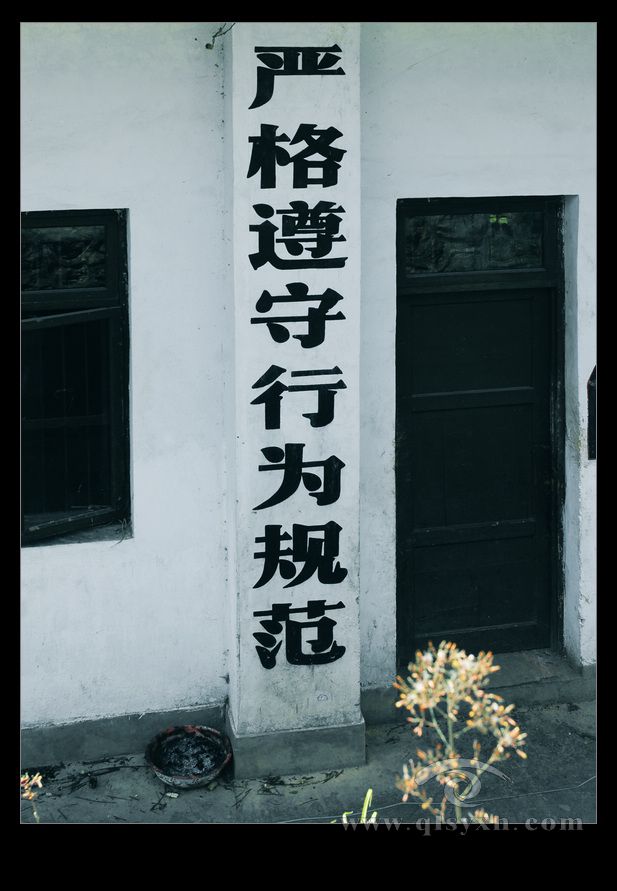 严格遵守行为规范
www.qlsyxh.com